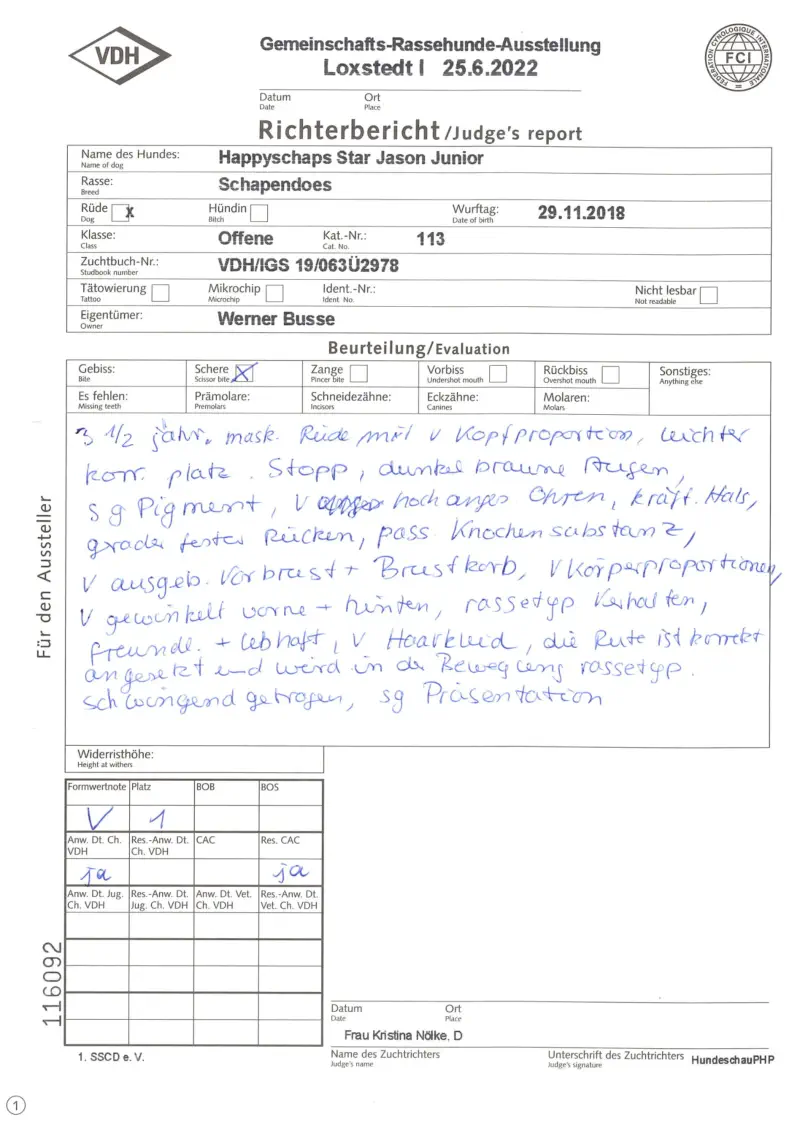 VDH
Gemeinschafts-Rassehunde-Ausstellung
Loxstedt I 25.6.2022
FEDERATION CYNOLOGIQUE INTERNATIONALE
FCI
Datum Ort
Date Place
Richterbericht/Judge's report
Name des Hundes: Happyschaps Star Jason Junior
Name of dog
Rasse: Schapendoes
Breed
Rüde x Hündin Wurftag: 29.11.2018
Dog Bitch Date of birth
Klasse: Offene Kat.-Nr.: 113
Class Cat. No.
Zuchtbuch-Nr.: VDH/IGS 19/063Ü2978
Studbook number
Tätowierung Mikrochip Ident.-Nr.: Nicht lesbar
Tattoo Microchip Ident. No. Not readable
Eigentümer: Werner Busse
Owner
Beurteilung/Evaluation
Gebiss: Schere X Zange Vorbiss Rückbiss Sonstiges:
Bite Scissor bite Pincer bite Undershot mouth Overshot mouth Anything else
Es fehlen: Prämolare: Schneidezähne: Eckzähne: Molaren:
Missing teeth Premolars Incisors Canines Molars
3 1/2 jähr. mask. Rüde mit v Kopfproportion, leichter
korr. platz. Stopp, dunkel braune Augen,
sg Pigment, v hoch anges Ohren, kräft. Hals,
grader fester Rücken, pass Knochensubstanz,
v ausgeb. Vorbrust + Brustkorb, v Körperproportionen,
v gewinkelt vorne + hinten, rassetyp Verhalten,
freundl. + lebhaft, v Haarkleid, die Rute ist korrekt
angesetzt und wird in der Bewegung rassetyp.
schwingend getragen, sg Präsentation
Für den Aussteller
Widerristhöhe:
Height at withers
Formwertnote Platz BOB BOS
V 1
Anw. Dt. Ch. Res.-Anw. Dt. CAC Res. CAC
VDH Ch. VDH
ja ja
Anw. Dt. Jug. Res.-Anw. Dt. Anw. Dt. Vet. Res.-Anw. Dt.
Ch. VDH Jug. Ch. VDH Ch. VDH Vet. Ch. VDH
116092
Datum Ort
Date Place
Frau Kristina Nölke, D
1. SSCD e. V.
Name des Zuchtrichters Unterschrift des Zuchtrichters HundeschauPHP
Judge's name Judge's signature
1